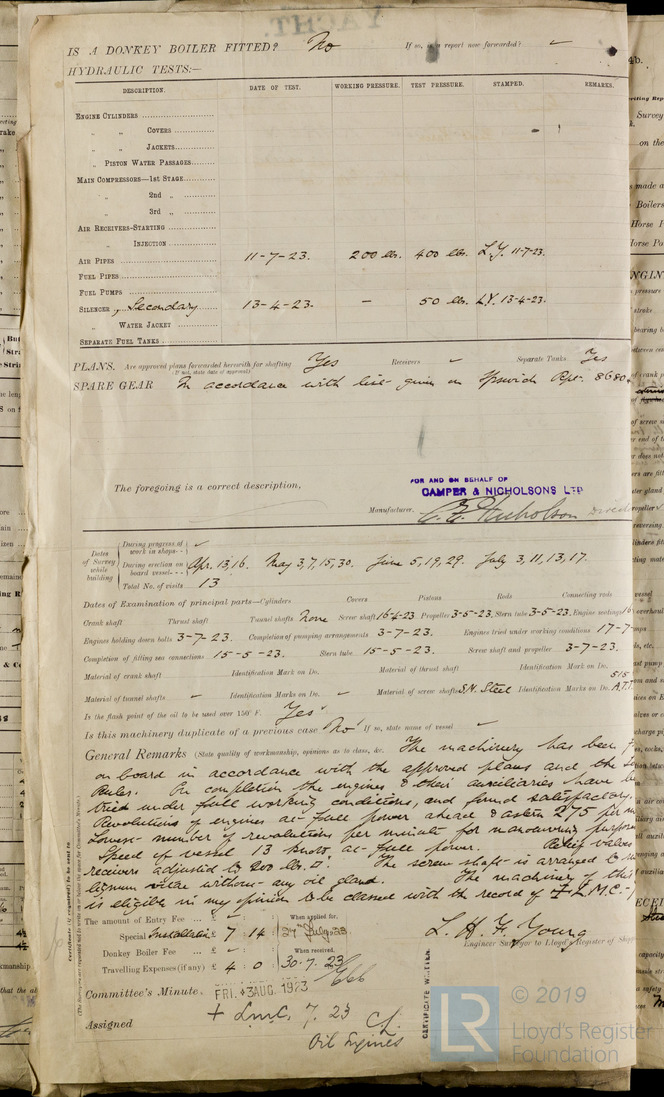 IS A DONKEY BOILER FITTED? No If so, is a report now forwarded? ✓
HYDRAULIC TESTS:—
DESCRIPTION. DATE OF TEST. WORKING PRESSURE. TEST PRESSURE. STAMPED. REMARKS.
ENGINE CYLINDERS
„ „ COVERS
„ „ JACKETS
„ PISTON WATER PASSAGES
MAIN COMPRESSORS—1st STAGE
„ 2nd „
„ 3rd „
AIR RECEIVERS-STARTING
„ INJECTION
AIR PIPES 11-7-23. 200 lbs. 400 lbs. L.Y. 11-7-23.
FUEL PIPES
FUEL PUMPS
SILENCER, Secondary 13-4-23. — 50 lbs. L.Y. 13-4-23.
„ WATER JACKET
SEPARATE FUEL TANKS
PLANS. Are approved plans forwarded herewith for shafting Yes Receivers ✓ Separate Tanks Yes
(If not, state date of approval)
SPARE GEAR In accordance with list given on Ipswich Rpt. 8680
The foregoing is a correct description,
FOR AND ON BEHALF OF
CAMPER & NICHOLSONS LTD
Manufacturer. Nicholson Director
Dates of Survey while building
During progress of work in shops-- ✓
During erection on board vessel--- Apr. 13, 16. May 3, 7, 15, 30. June 5, 19, 29. July 3, 11, 13, 17.
Total No. of visits 13
Dates of Examination of principal parts—Cylinders Covers Pistons Rods Connecting rods
Crank shaft Thrust shaft Tunnel shafts None Screw shaft 16-4-23 Propeller 3-5-23. Stern tube 3-5-23. Engine seatings 16
Engines holding down bolts 3-7-23. Completion of pumping arrangements 3-7-23. Engines tried under working conditions 17-7-
Completion of fitting sea connections 15-5-23. Stern tube 15-5-23. Screw shaft and propeller 3-7-23.
Material of crank shaft Identification Mark on Do. Material of thrust shaft Identification Mark on Do. 515
Material of tunnel shafts ✓ Identification Marks on Do. ✓ Material of screw shafts S.M. Steel Identification Marks on Do. A.T.
Is the flash point of the oil to be used over 150° F. Yes
Is this machinery duplicate of a previous case No If so, state name of vessel ✓
General Remarks (State quality of workmanship, opinions as to class, &c. The machinery has been
on board in accordance with the approved plans and the
Rules. On completion the engines & their auxiliaries have
tried under full working conditions, and found satisfactory.
Revolutions of engines at full power ahead & astern 275 per
Lowest number of revolutions per minute for manoeuvring purposes
Speed of vessel 13 knots at full power. Relief valves
receivers adjusted to 200 lbs. □". The screw shaft is arranged to
lignum vitae without any oil gland. The machinery of this
is eligible in my opinion to be classed with the record of + L.M.C.-
The amount of Entry Fee ... £ : : When applied for,
Special Installation £ 7 : 14 : 27 July 23
Donkey Boiler Fee ... £ ✓ : : When received,
Travelling Expenses (if any) £ 4 : 0 : 30.7.23
L. H. F. Young
Engineer Surveyor to Lloyd's Register of
Committee's Minute FRI. 3 AUG 1923
Assigned + LMC. 7. 23
Oil Engines
CERTIFICATE WRITTEN.
Certificate (if required) to be sent to
(The Surveyors are requested not to write on or below the space for Committee's Minute.)
LR
© 2019
Lloyd's Register
Foundation